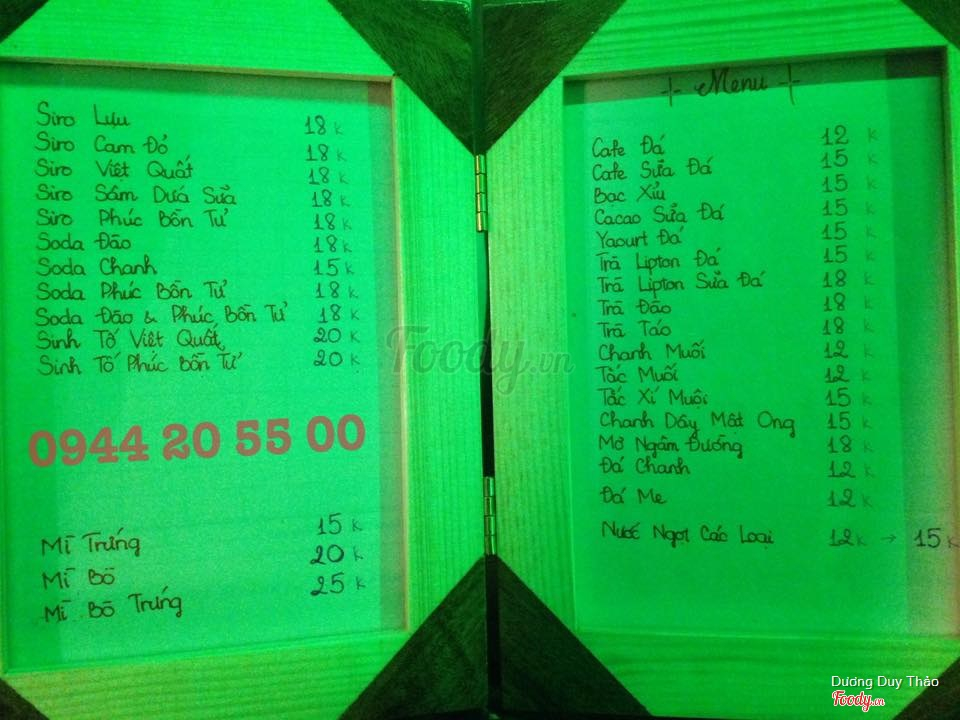 Siro Lựu 18 K
Siro Cam Đỏ 18 K
Siro Việt Quất 18 K
Siro Sám Dứa Sữa 18 K
Siro Phúc Bồn Tử 18 K
Soda Đào 18 K
Soda Chanh 15 K
Soda Phúc Bồn Tử 18 K
Soda Đào & Phúc Bồn Tử 18 K
Sinh Tố Việt Quất 20 K
Sinh Tố Phúc Bồn Tử 20 K
0944 20 55 00
Mì Trứng 15 K
Mì Bò 20 K
Mì Bò Trứng 25 K
Menu
Cafe Đá 12 K
Cafe Sữa Đá 15 K
Bạc Xỉu 15 K
Cacao Sữa Đá 15 K
Yaourt Đá 15 K
Trà Lipton Đá 15 K
Trà Lipton Sữa Đá 18 K
Trà Đào 18 K
Trà Táo 18 K
Chanh Muối 12 K
Tắc Muối 12 K
Tắc Xí Muội 15 K
Chanh Dây Mật Ong 15 K
Mơ Ngâm Đường 18 K
Đá Chanh 12 K
Đá Me 12 K
Nước Ngọt Các Loại 12 K → 15 K
Foody.vn
Dương Duy Thảo
Foody.vn